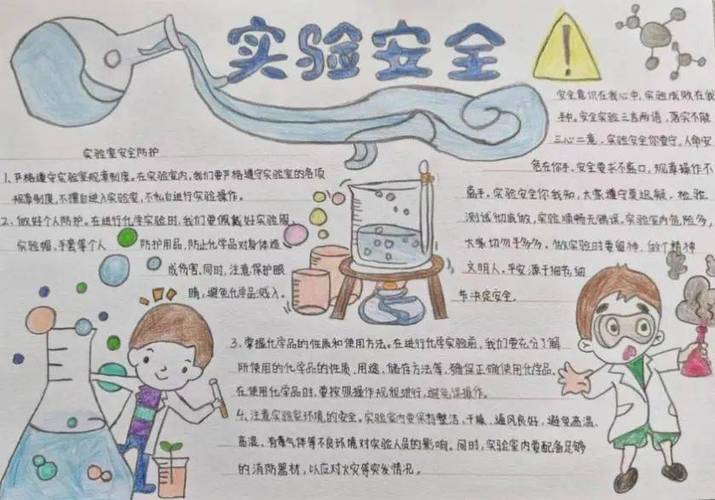 实验安全
实验室安全防护
1、严格遵守实验室规章制度。在实验室内,我们要严格遵守实验室的各项
规章制度,不擅自进入实验室,不私自进行实验操作。
2、做好个人防护。在进行化学实验时,我们要佩戴好实验服、
实验帽、手套等个人防护用品,防止化学品对身体造
成伤害。同时,注意保护眼
睛,避免化学品溅入。
安全意识在我心中,实验成败在我
手中。安全实验三言两语,落实不能
三心二意。实验安全你要守,人命安
危在你手。安全要求不离口,规章操作不
离手。实验安全你我知,大家遵守莫迟疑。检验
测试彻底做,实验顺畅无错误。实验室内危险多,
大家切勿手多多。做实验时要留神,做个精神
文明人。平安源于细节,细
节决定安全。
3、掌握化学品的性质和使用方法。在进行化学实验前,我们要充分了解
所使用的化学品的性质、用途、储存方法等,确保正确使用化学品。
在使用化学品时,要按照操作规程进行,避免误操作。
4、注意实验室环境的安全。实验室内要保持整洁、干燥、通风良好,避免高温、
高湿、有毒气体等不良环境对实验人员的影响。同时,实验室内要配备足够
的消防器材,以应对火灾等突发情况。